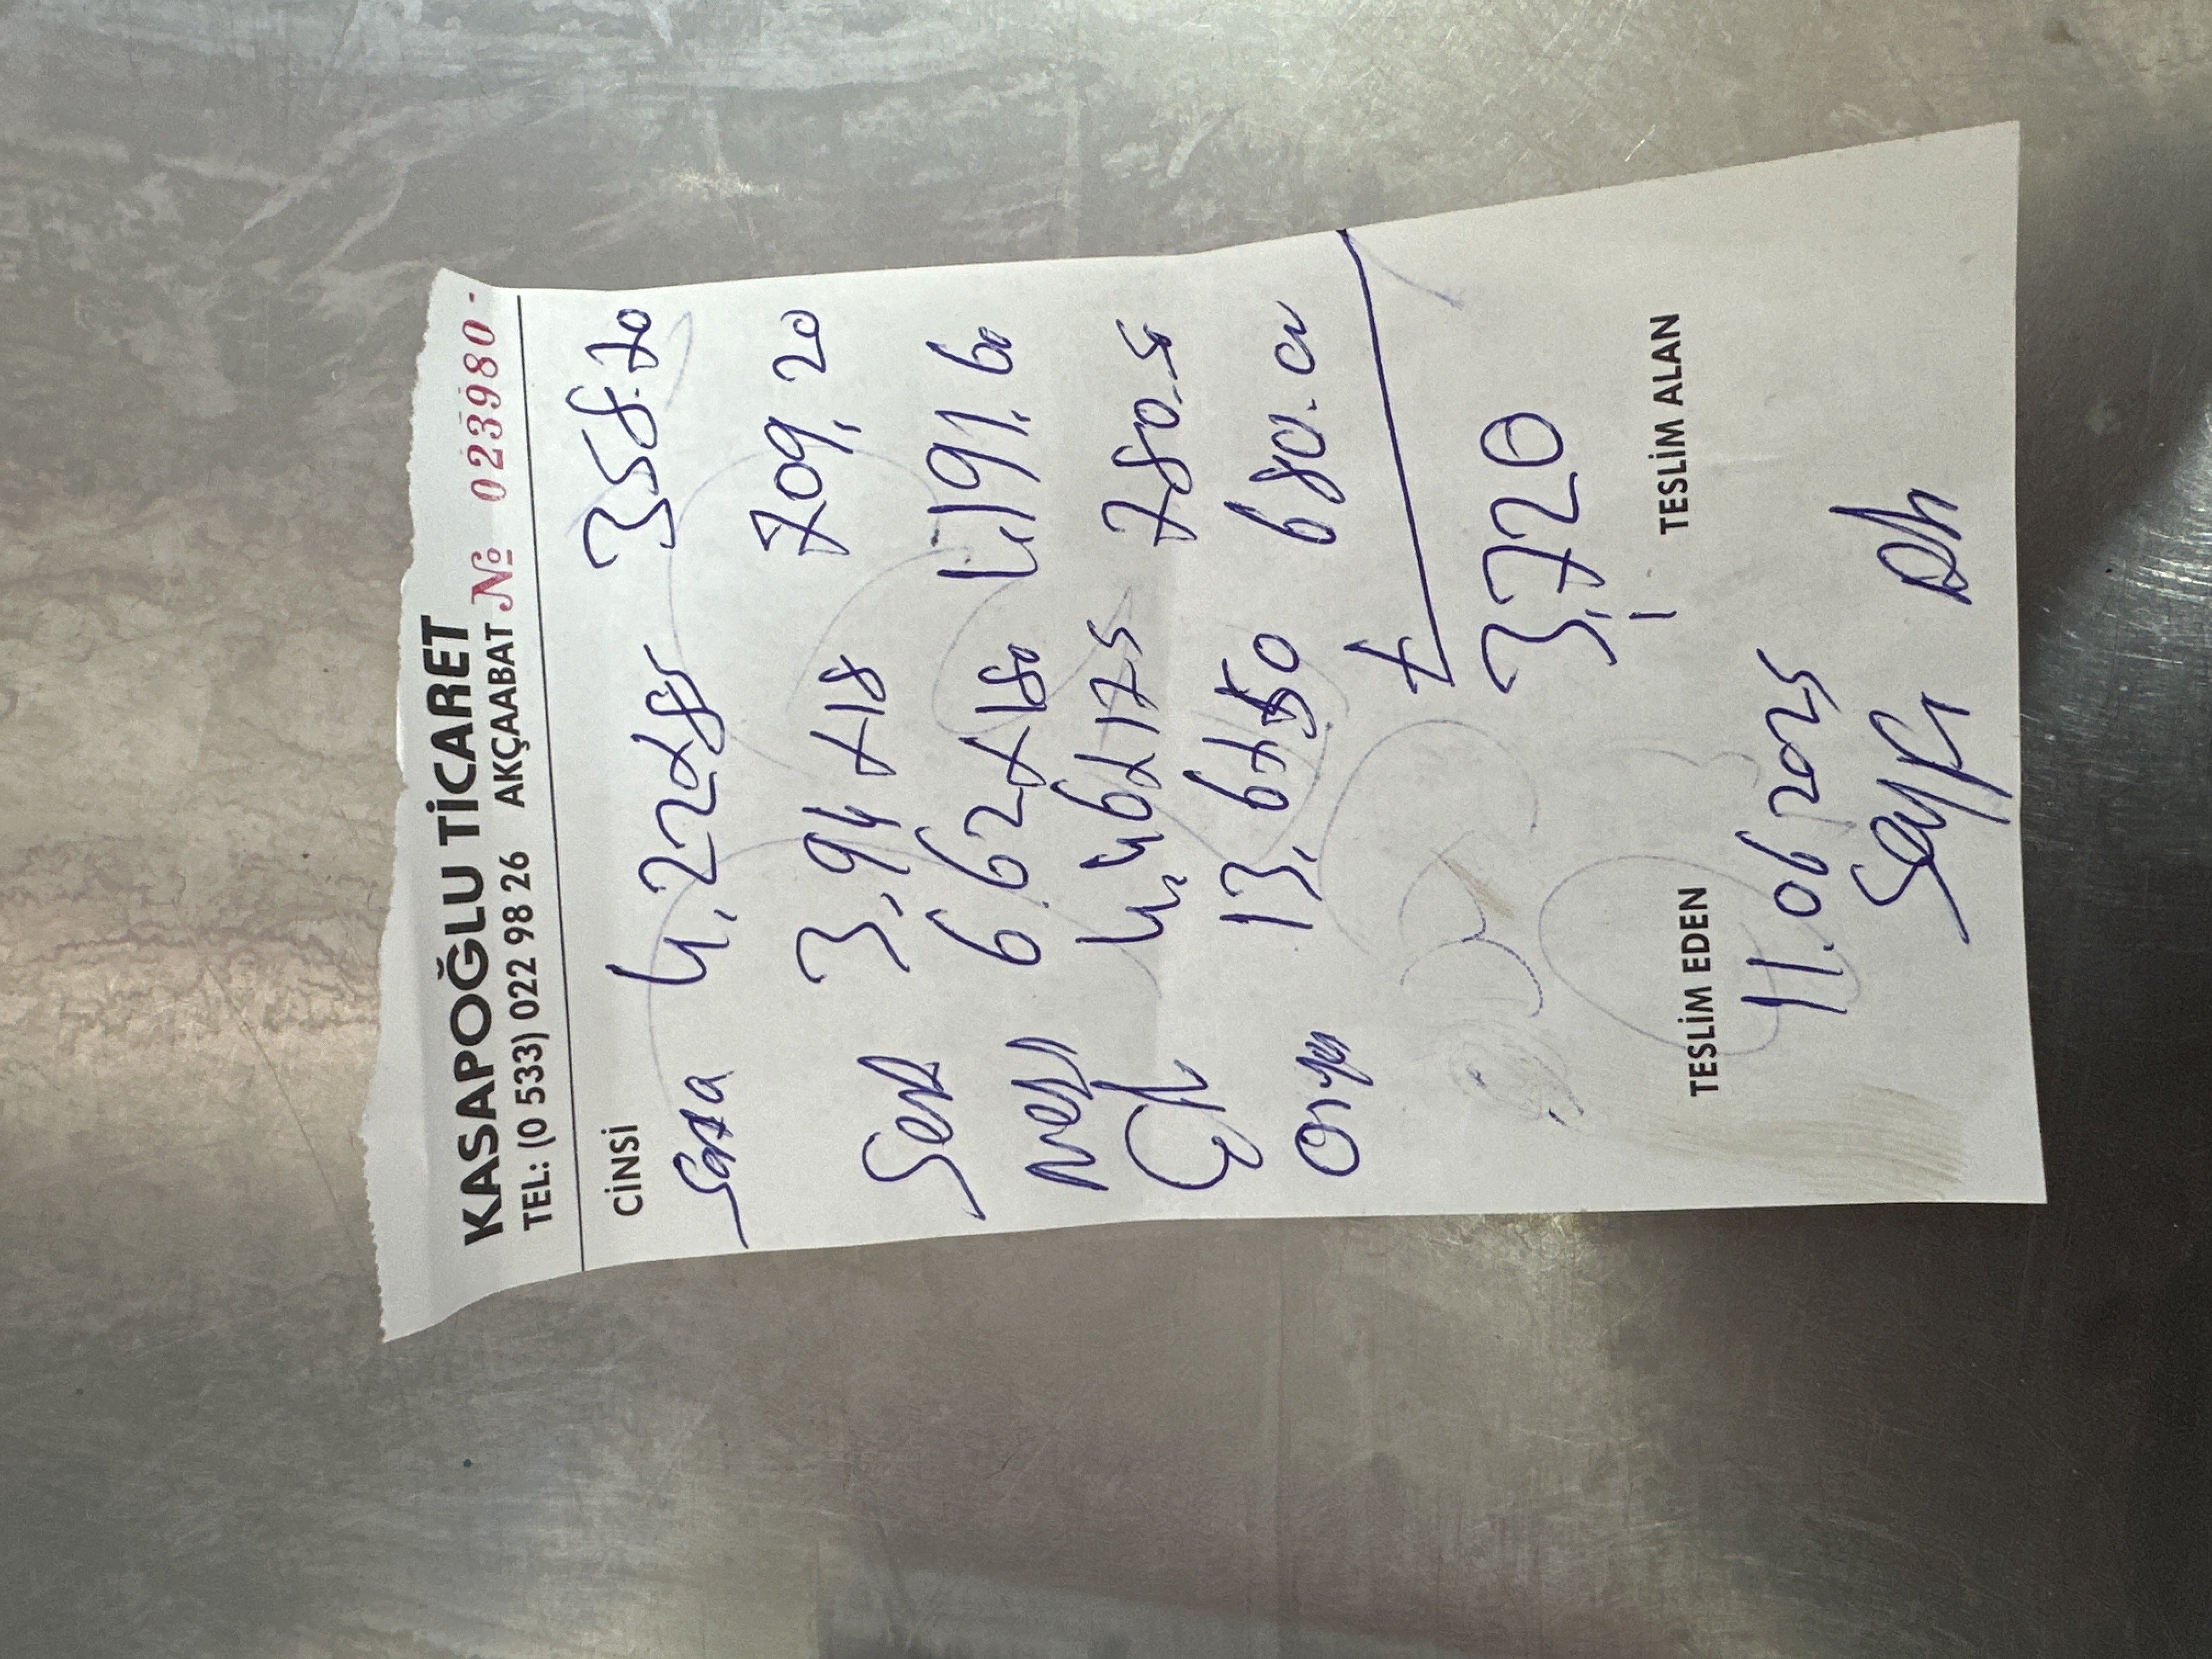 KASAPOĞLU TİCARET
TEL: (0 533) 022 98 26 AKÇAABAT № 023980
CİNSİ
4,22x85 358.70
3,94x18 709.20
6.62x180 1,191.60
4,46x175 780.5
13.6x50 680.00
+
3,720
TESLİM EDEN TESLİM ALAN
11.06.2025
Seyfi